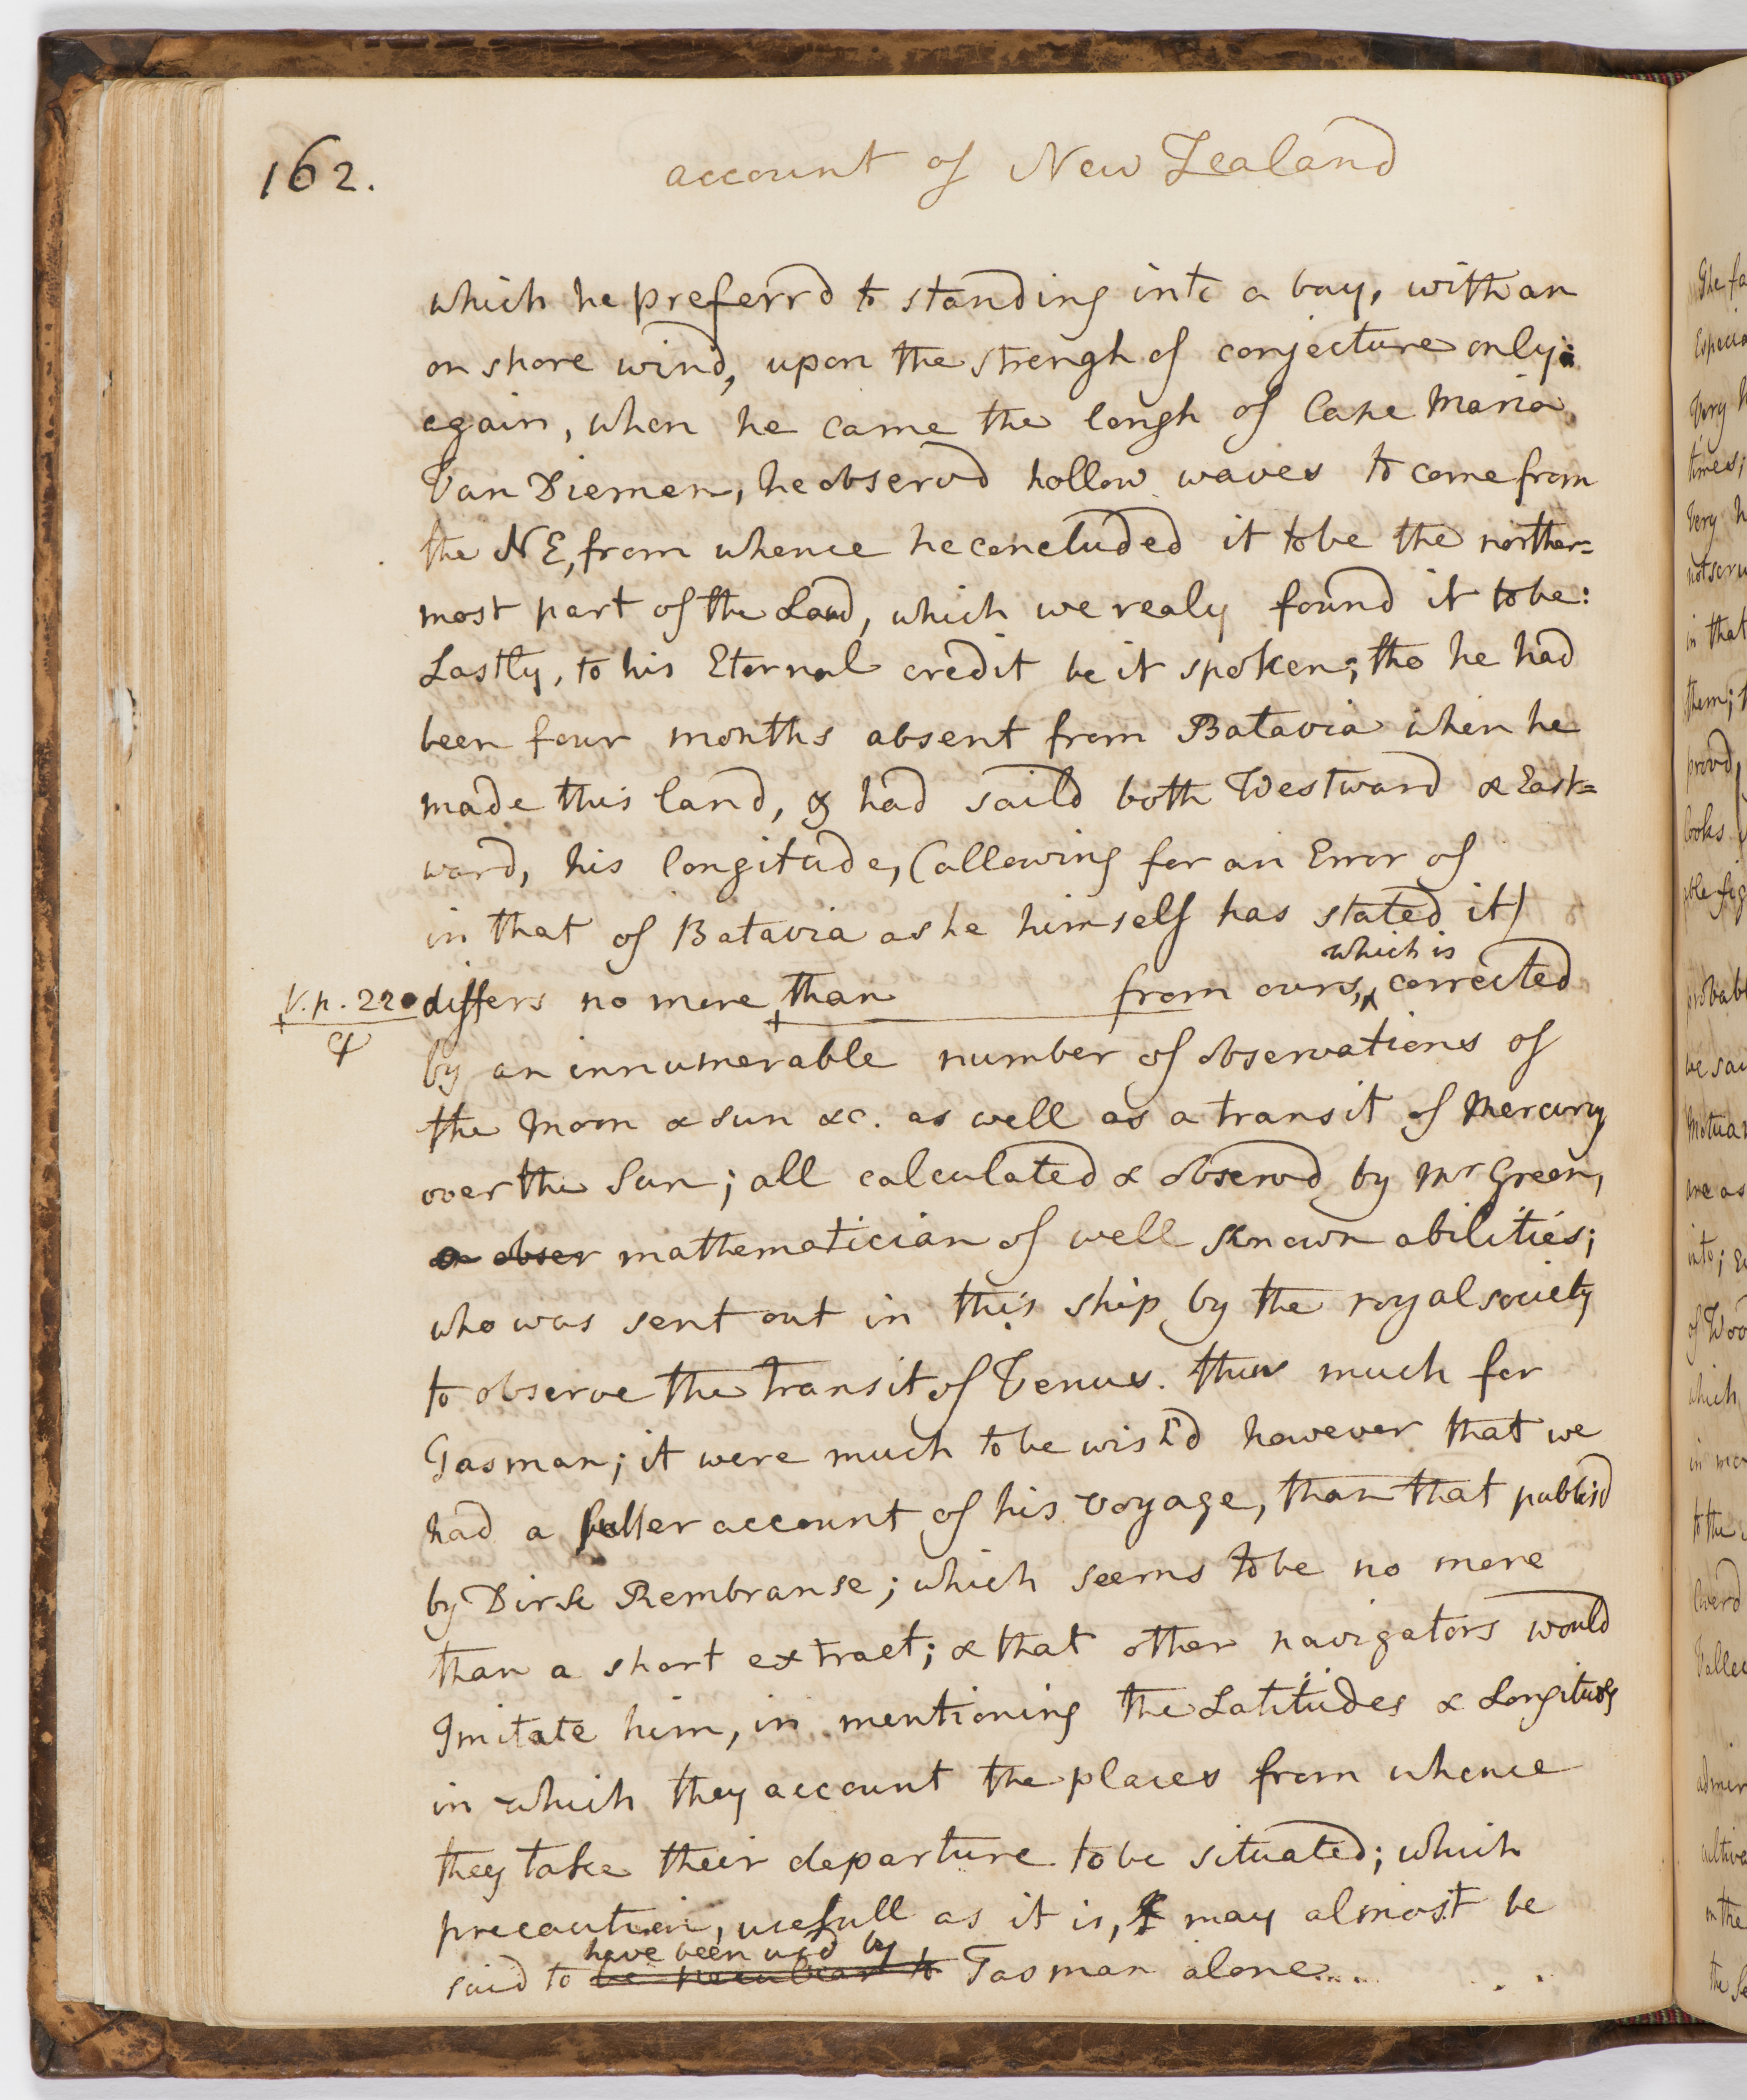 162.
account of New Zealand
which he preferrd to standing into a bay, with an
on shore wind, upon the strengh of conjecture only:
again, when he came the lengh of Cape Maria
Van Diemen, he observd hollow waves to come from
the NE, from whence he concluded it to be the norther=
most part of the Land, which we realy found it to be:
Lastly, to his Eternal credit be it spoken; tho he had
been four months absent from Batavia when he
made this land, & had saild both Westward & East=
ward, his longitude, (allowing for an Error of
in that of Batavia as he himself has stated it)
which is
V.p. 220 differs no more than from ours, corrected
by an innumerable number of observations of
the Moon & sun &c. as well as a transit of Mercury
over the Sun; all calculated & observd by Mr Green,
a obser mathematician of well known abilities;
who was sent out in this ship by the royal society
to observe the transit of Venus. thus much for
Tasman; it were much to be wishd however that we
had a fuller account of his voyage, than that publisd
by Dirk Rembranse; which seems to be no more
than a short extract; & that other navigators would
Imitate him, in mentioning the Latitudes & Longitudes
in which they account the places from whence
they take their departure to be situated; which
precaution, usefull as it is, may almost be
have been usd by
said to be peculiar to Tasman alone....